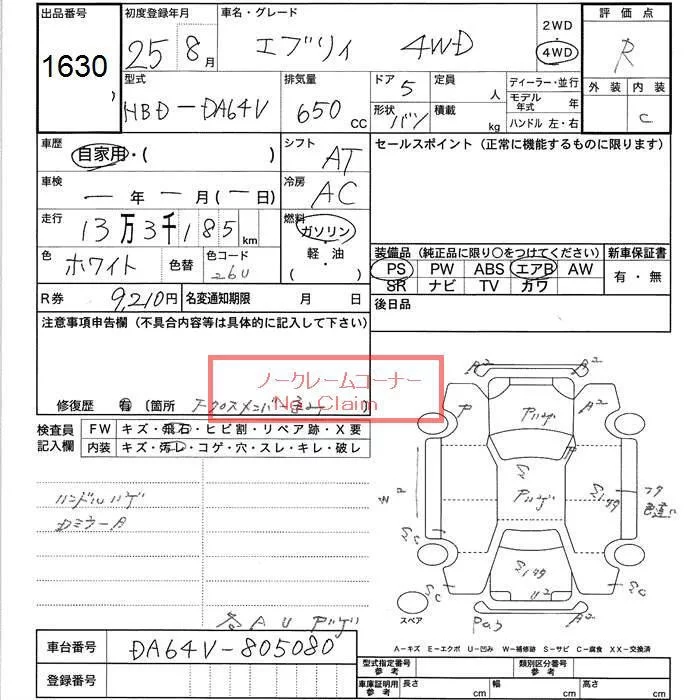 出品番号 初度登録年月 車名・グレード 2WD 評価点
1630 25 8月 エブリィ 4WD 4WD R
型式 排気量 ドア 5 定員 人 ディーラー・並行 外装 内装
HBD-DA64V 650 CC 形状 バン 積載 kg モデル年式 年 C
ハンドル 左・右
車歴 自家用・( ) シフト AT セールスポイント(正常に機能するものに限ります)
車検 ー年ー月(ー日) 冷房 AC
走行 13万3千185km 燃料 ガソリン・軽油・( )
色 ホワイト 色替 色コード 26U 装備品(純正品に限り○をつけてください) 新車保証書
PS PW ABS エアB AW 有・無
SR ナビ TV カワ
R券 9,210円 名変通知期限 月 日 後日品
注意事項申告欄(不具合内容等は具体的に記入して下さい)
ノークレームコーナー
No Claim
修復歴 有 〔箇所
検査員記入欄 FW キズ・飛石・ヒビ割・リペア跡・X要
内装 キズ・汚レ・コゲ・穴・スレ・キレ・破レ
ハンドルハゲ
R² A²
P Pハゲ A²
Pハゲ
P フタ色違い
S C
U²
A²
スペア
各AUPハゲ
A-キズ E-エクボ U-凹み W-補修跡 S-サビ C-腐食 XX-交換済
車台番号 DA64V-805080 型式指定番号 参考 類別区分番号 参考
登録番号 車庫証明用 参考 長さ cm 幅 cm 高さ cm